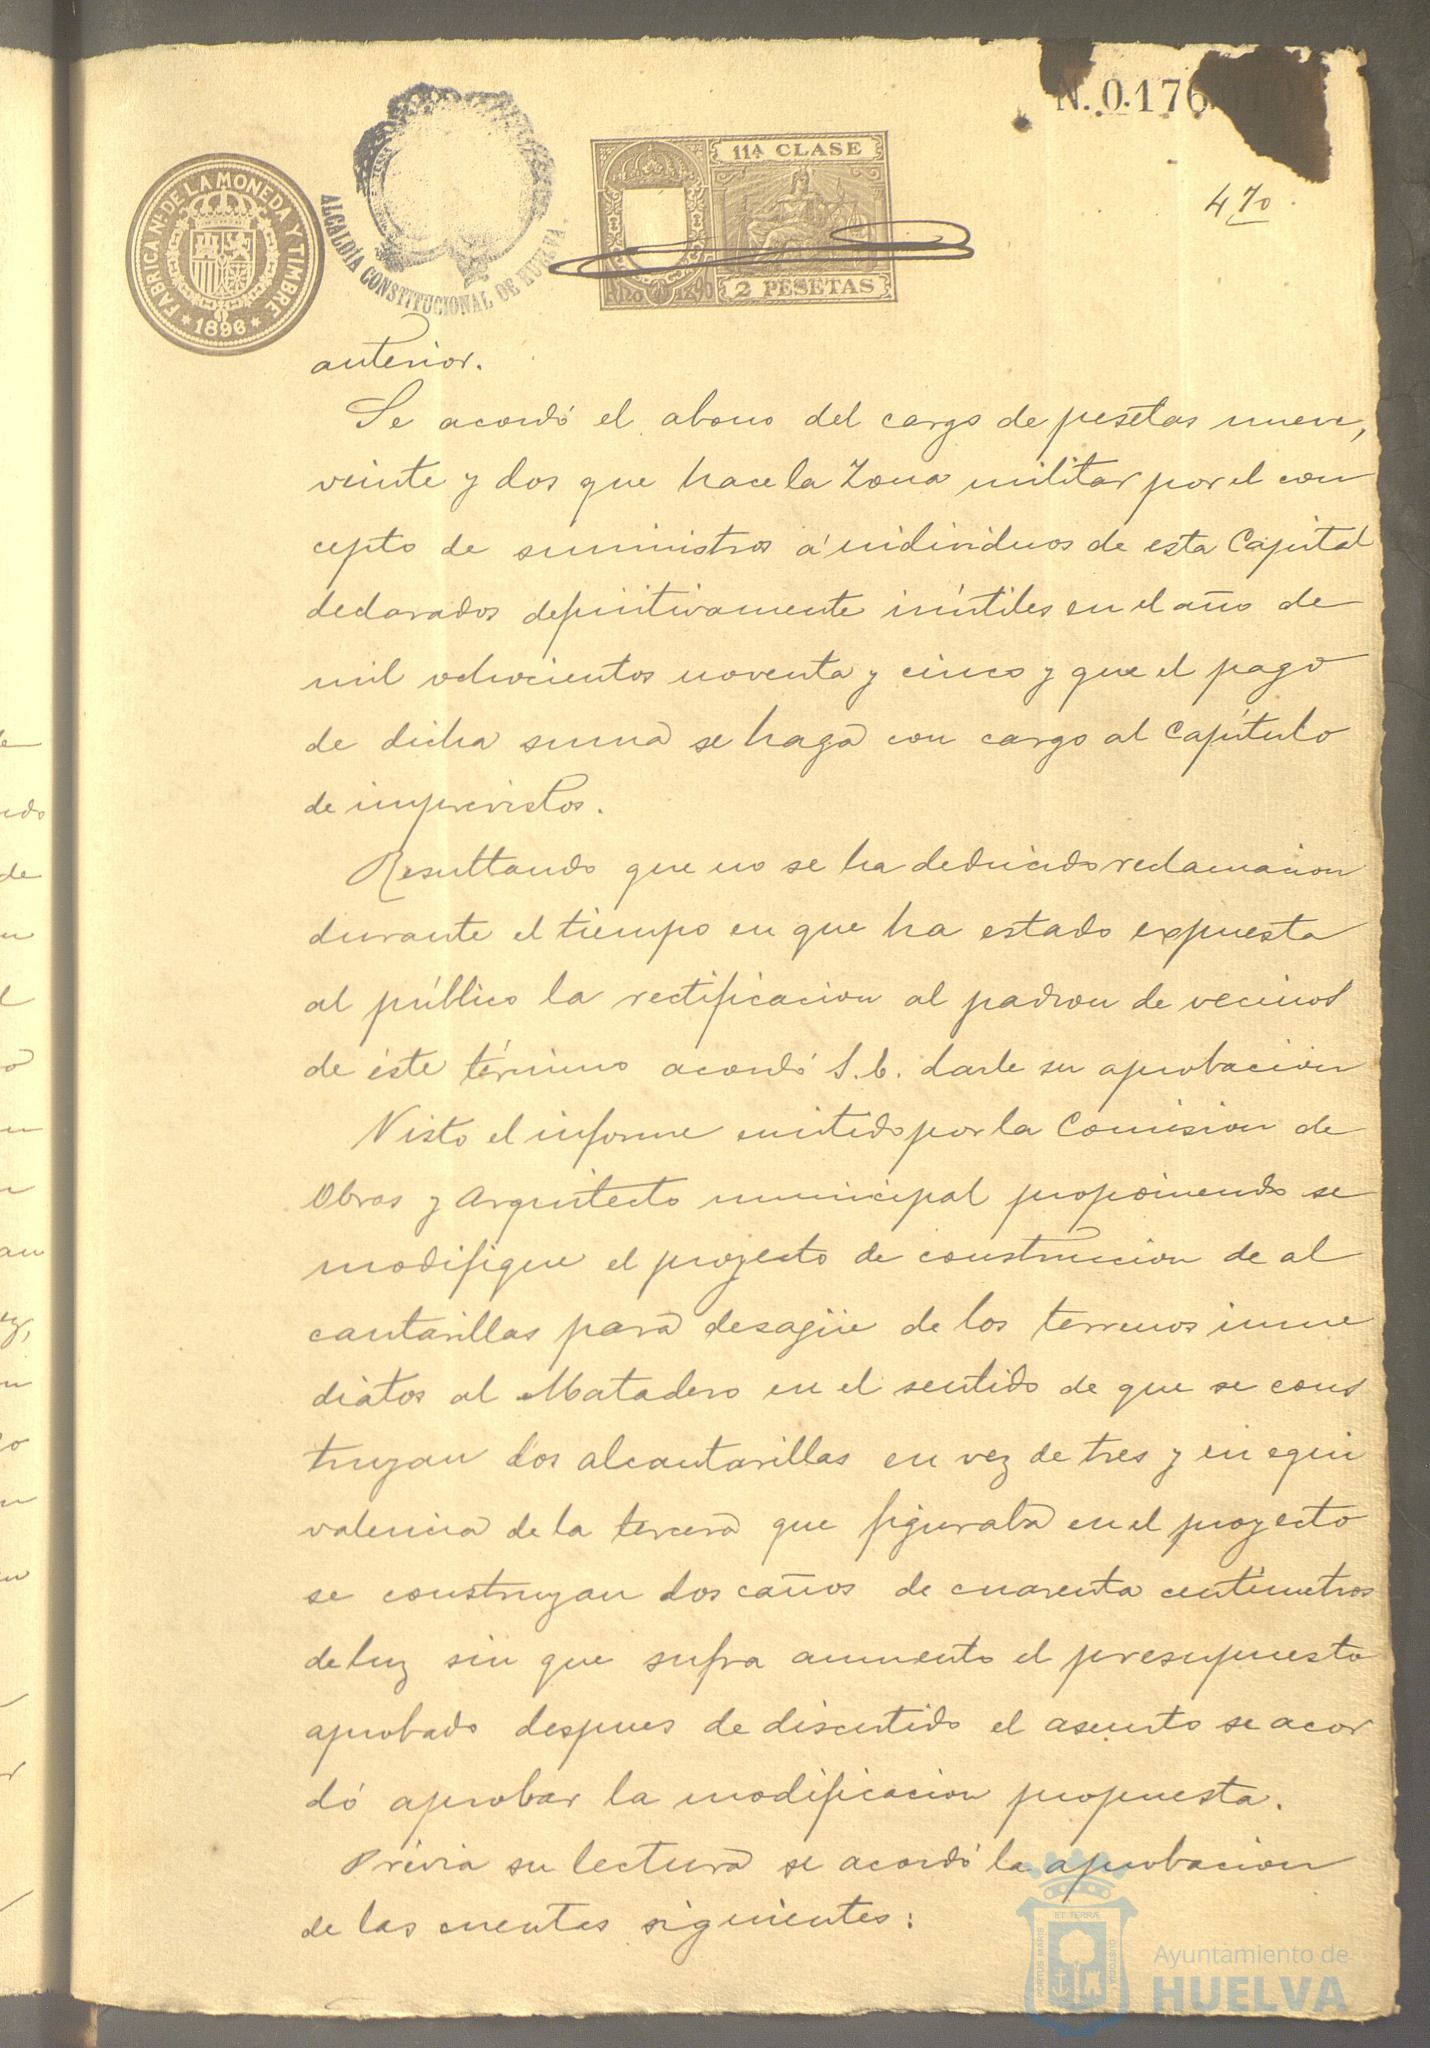 N. 0.176
470
FABRICA NL. DE LA MONEDA Y TIMBRE
* 1896 *
ALCALDÍA CONSTITUCIONAL DE HUELVA.
11ª CLASE
2 PESETAS
anterior.
Se acordó el abono del cargo de pesetas nueve,
veinte y dos que hace la Zona militar por el con
cepto de suministros á individuos de esta Capital
declarados definitivamente inútiles en el año de
mil ochocientos noventa y cinco y que el pago
de dicha suma se haga con cargo al Capítulo
de imprevistos.
Resultando que no se ha deducido reclamacion
durante el tiempo en que ha estado expuesta
al público la rectificacion al padron de vecinos
de éste término acordó S.E. darle su aprobacion
Visto el informe emitido por la Comision de
Obras y Arquitecto municipal proponiendo se
modifique el proyecto de construccion de al
cantarillas para desagüe de los terrenos inme
diatos al Matadero en el sentido de que se cons
truyan dos alcantarillas en vez de tres y en equi
valencia de la tercera que figuraba en el proyecto
se construyan dos caños de cuarenta centímetros
de luz sin que sufra aumento el presupuesto
aprobado despues de discutido el asunto se acor
dó aprobar la modificacion propuesta.
Prévia su lectura se acordó la aprobacion
de las cuentas siguientes:
PORTUS MARIS ET TERRÆ CUSTODIA
Ayuntamiento de
HUELVA